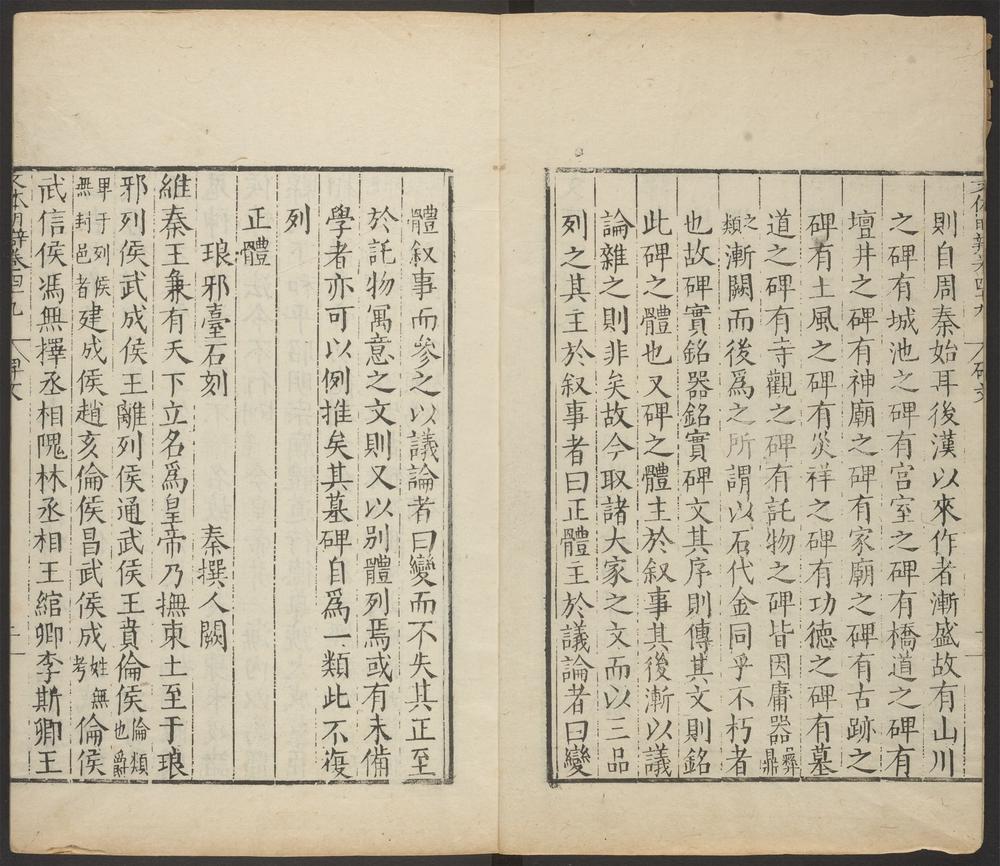 則自周秦始耳後漢以來作者漸盛故有山川
之碑有城池之碑有宮室之碑有橋道之碑有
壇井之碑有神廟之碑有家廟之碑有古跡之
碑有土風之碑有災祥之碑有功德之碑有墓
道之碑有寺觀之碑有託物之碑皆因庸器彝鼎
之類漸闕而後爲之所謂以石代金同乎不朽者
也故碑實銘器銘實碑文其序則傳其文則銘
此碑之體也又碑之體主於叙事其後漸以議
論雜之則非矣故今取諸大家之文而以三品
列之其主於叙事者曰正體主於議論者曰變
體叙事而參之以議論者曰變而不失其正至
於託物寓意之文則又以别體列焉或有未備
學者亦可以例推矣其墓碑自爲一類此不復
列
正體
琅邪臺石刻 秦撰人闕
維秦王兼有天下立名爲皇帝乃撫東土至于琅
邪列侯武成侯王離列侯通武侯王賁倫侯倫類也爵
卑于列侯無封邑者建成侯趙亥倫侯昌武侯成姓無考倫侯
武信侯馮無擇丞相隗林丞相王綰卿李斯卿王